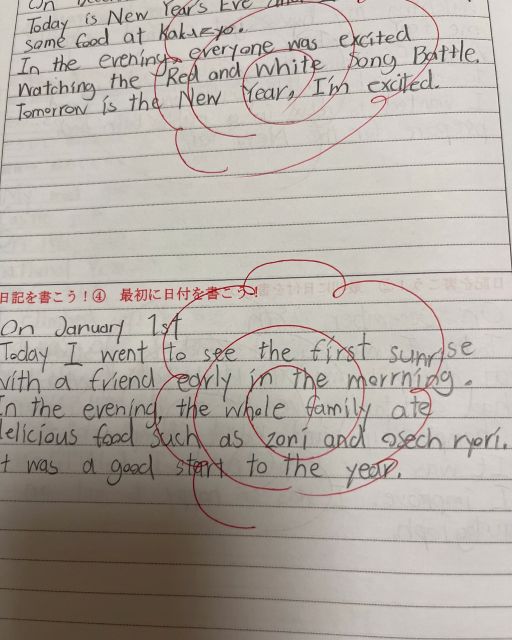 On
Today is New Year's Eve and
some food at Kakuzyo.
In the evening, everyone was excited
watching the Red and White Song Battle.
Tomorrow is the New Year, I'm excited.
日記を書こう！④ 最初に日付を書こう！
On January 1st
Today I went to see the first sunrise
with a friend early in the morrning.
In the evening, the whole family ate
delicious food such as zoni and osech ryori.
It was a good start to the year.